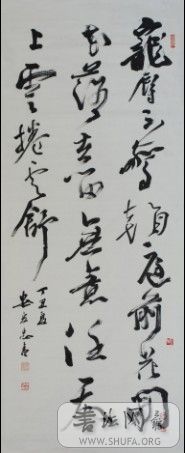 寵辱不驚庭前花開
花落去留無意任天
上雲捲雲舒
丁丑夏
書法網
WWW.SHUFA.ORG